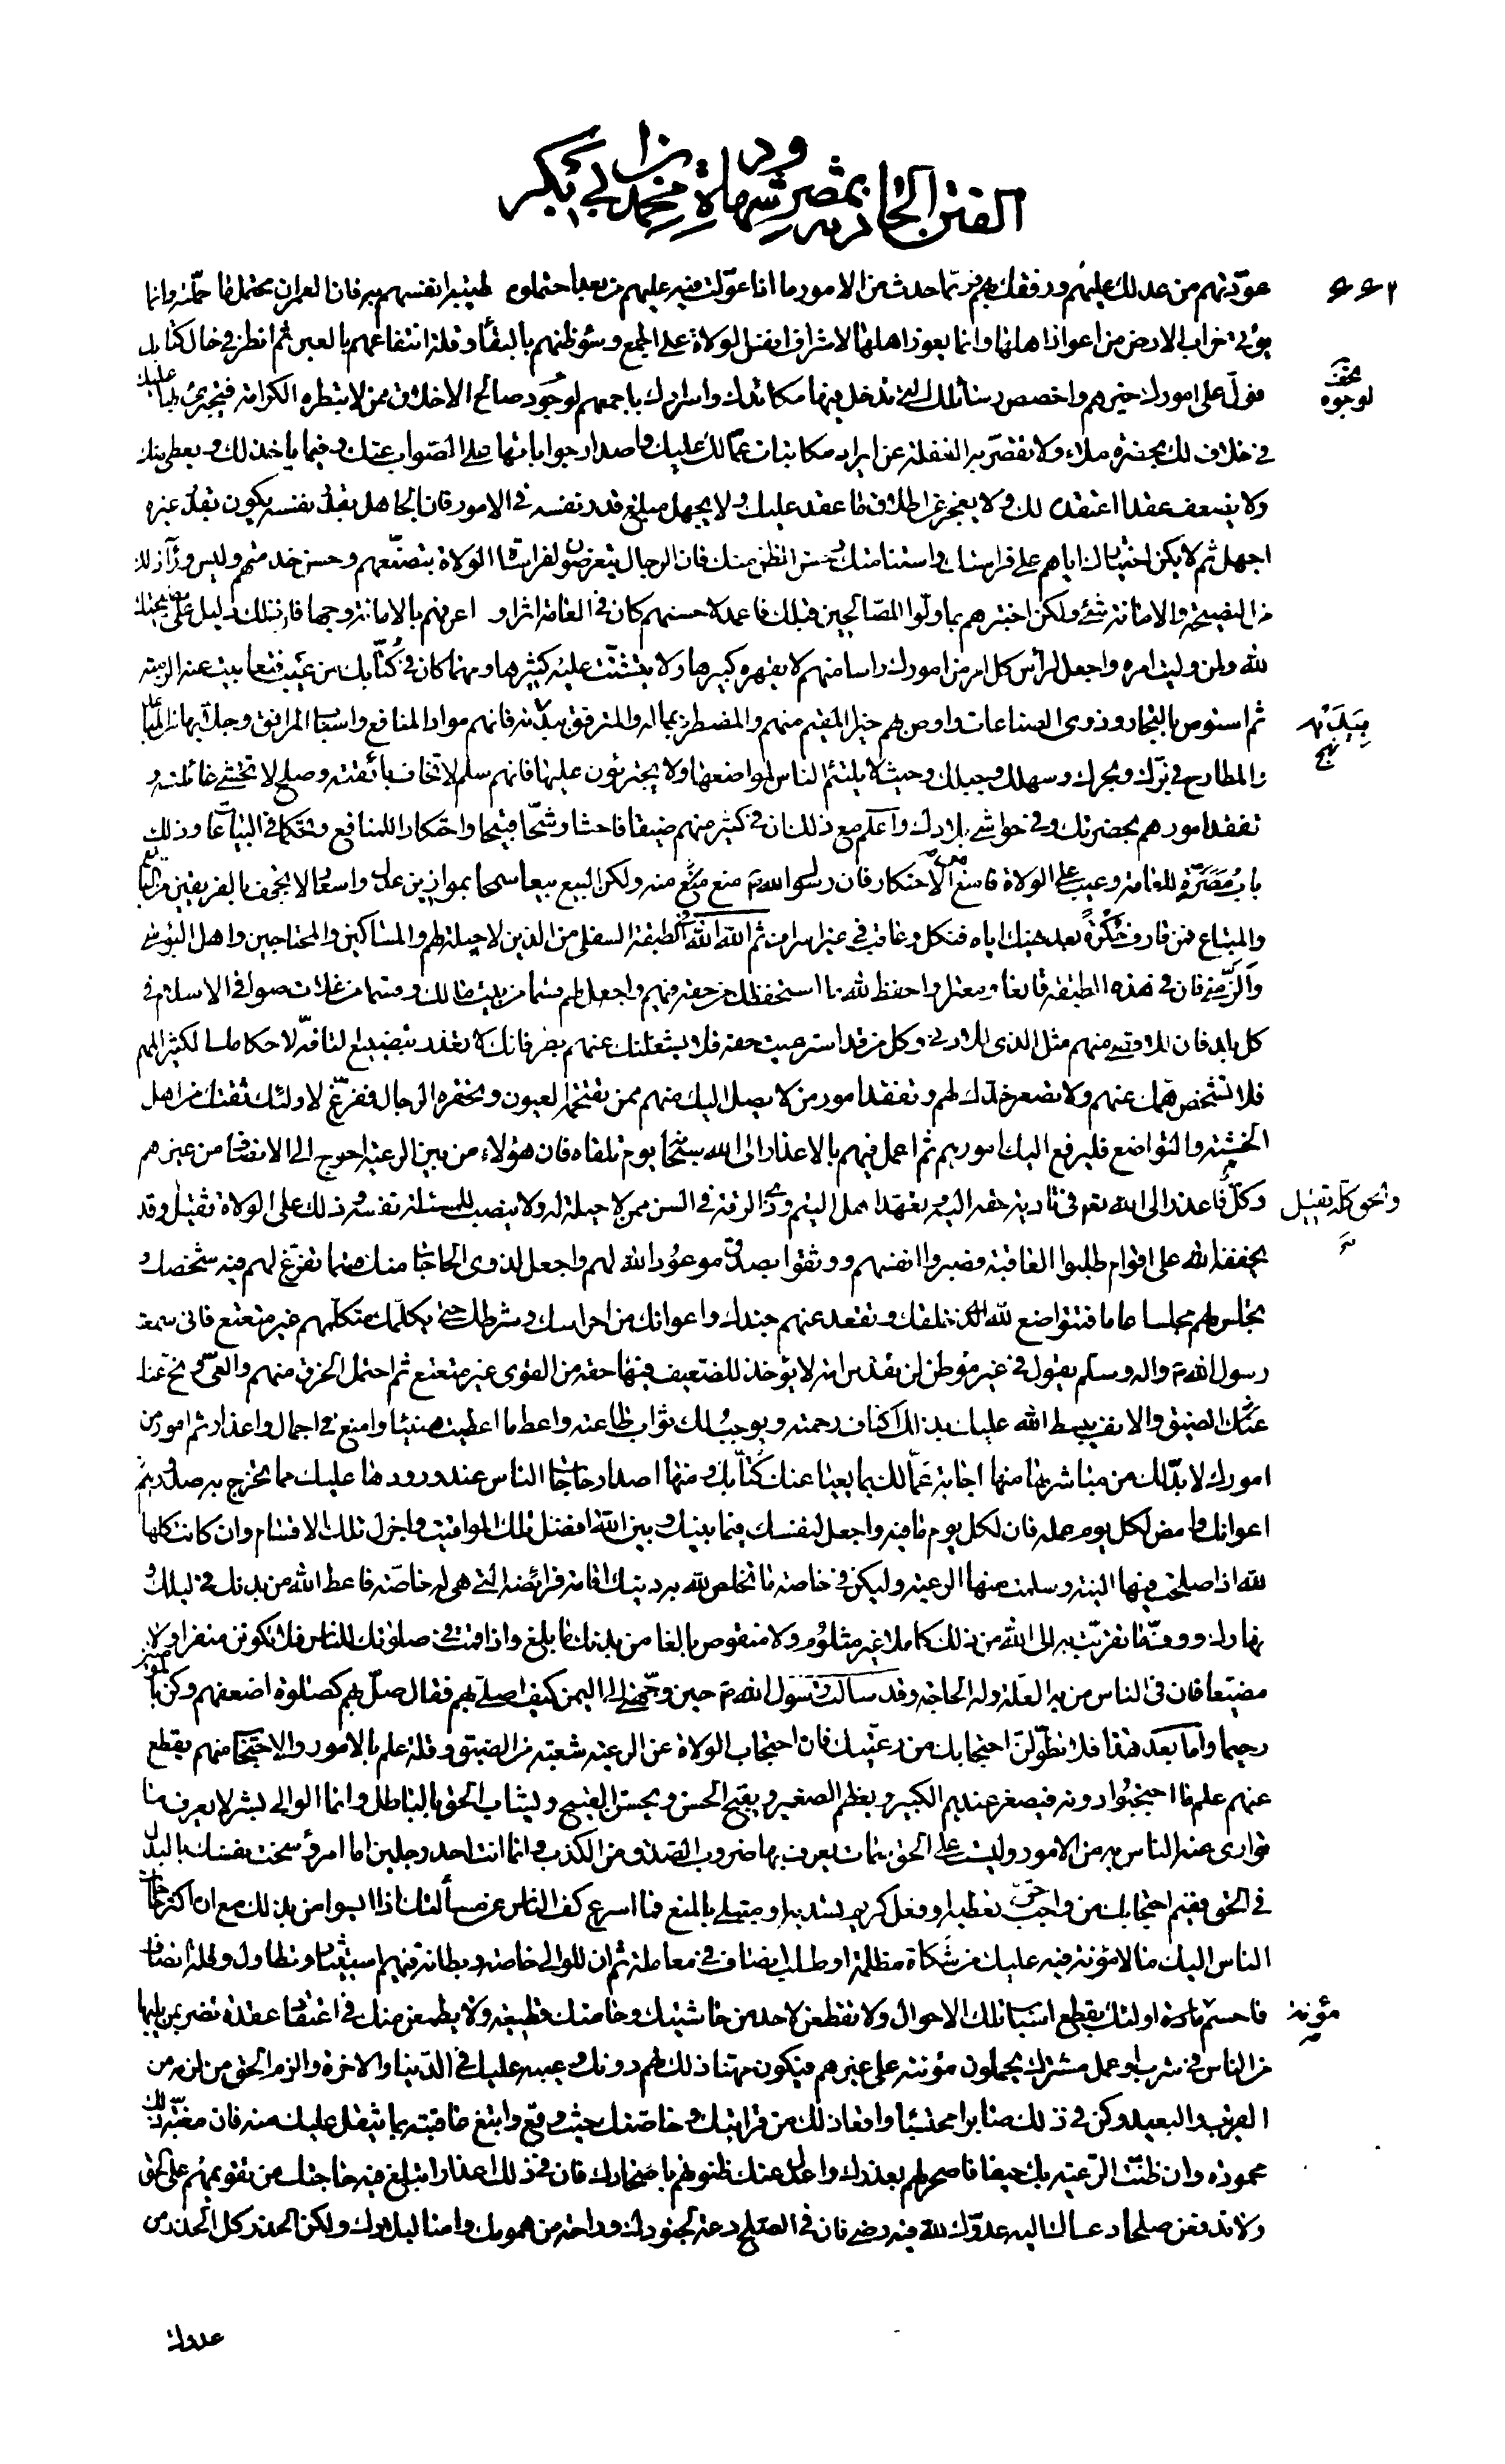 الفتن الحادثة بمصر وشهادة محمد بن ابي بكر
عوّدتهم من عدلك عليهم ورفقك بهم فربّما حدث من الامور ما اذا عوّلت فيه عليهم من بعد احتملوه طيبة انفسهم به فان العمران محتمل ما حمّلته وانما
يؤتى خراب الارض من اعواز اهلها وانما يعوز اهلها لاشراف انفس الولاة على الجمع وسوء ظنهم بالبقاء وقلة انتفاعهم بالعبر ثم انظر في حال كتابك
فولّ على امورك خيرهم واخصص رسائلك التي تدخل فيها مكائدك واسرارك باجمعهم لوجود صالح الاخلاق ممن لا تبطره الكرامة فيجترئ بها عليك
في خلاف لك بحضرة ملاء ولا تقصر به الغفلة عن ايراد مكاتبات عمّالك عليك واصدار جواباتها على الصواب عنك وفيما ياخذ لك ويعطي منك
ولا يضعف عقدا اعتقده لك ولا يعجز عن اطلاق ما عقد عليك ولا يجهل مبلغ قدر نفسه في الامور فان الجاهل بقدر نفسه يكون بقدر غيره
اجهل ثم لا يكن اختيارك اياهم على فراستك واستنامتك وحسن الظن منك فان الرجال يتعرضون لفراسات الولاة بتصنّعهم وحسن خدمتهم وليس وراء ذلك
من النصيحة والامانة شئ ولكن اختبرهم بما ولّوا للصالحين قبلك فاعمد لاحسنهم كان في العامة اثرا و اعرفهم بالامانة وجها فان ذلك دليل على نصيحتك
لله ولمن وليت امره واجعل لرأس كل امر من امورك راسا منهم لا يقهره كبيرها ولا يتشتّت عليه كثيرها ومهما كان في كُتّابك من عيب فتغابيت عنه الزمته
ثم استوص بالتجار وذوى الصناعات واوص بهم خيرا المقيم منهم والمضطرب بماله والمترفق ببدنه فانهم مواد المنافع واسباب المرافق وجلّابها من المباعد
والمطارح في برّك وبحرك وسهلك وجبلك وحيث لا يلتئم الناس لمواضعها ولا يجترئون عليها فانهم سلم لا تخاف بائقته وصلح لا تخشى غائلته و
تفقد امورهم بحضرتك وفي حواشي بلادك واعلم مع ذلك ان في كثير منهم ضيقا فاحشا وشحّا قبيحا واحتكارا للمنافع وتحكما في البياعات وذلك
باب مَضَرّة للعامة وعيب على الولاة فامنع من الاحتكار فان رسول الله ص منع منه وليكن البيع بيعا سمحا بموازين عدل واسعار لا تجحف بالفريقين من البايع
والمبتاع فمن قارف حُكْرةً بعد نهيك اياه فنكل وعاقب في غير اسراف ثم الله الله في الطبقة السفلى من الذين لا حيلة لهم والمساكين والمحتاجين واهل البؤسى
والزّمنى فان في هذه الطبقة قانعا ومعترا واحفظ لله ما استحفظك من حقه فيهم واجعل لهم قسما من بيت مالك وقسما من غلات صوافى الاسلام في
كل بلد فان للاقصى منهم مثل الذي للادنى وكل من قد استرعيت حقه فلا يشغلنك عنهم بطر فانك لا تعذر بتضييع التافه لاحكامك الكثير المهم
فلا تشخص همّك عنهم ولا تصعر خدك لهم وتفقد امور من لا يصل اليك منهم ممن تقتحمه العيون وتحقره الرجال ففرّغ لاولئك ثقتك من اهل
الخشية والتواضع فليرفع اليك امورهم ثم اعمل فيهم بالاعذار الى الله سبحانه يوم تلقاه فان هؤلاء من بين الرعية احوج الى الانصاف من غيرهم
وكلّ فاعذر الى الله تعالى في تادية حقه اليه وتعهد اهل اليتم وذوي الرقة في السن ممن لا حيلة له ولا ينصب للمسئلة نفسه وذلك على الولاة ثقيل وقد
والحق كله ثقيل
يخففه الله على اقوام طلبوا العاقبة فصبروا انفسهم ووثقوا بصدق موعود الله لهم واجعل لذوى الحاجات منك قسما تفرّغ لهم فيه شخصك و
تجلس لهم مجلسا عاما فتتواضع لله الذي خلقك وتقعد عنهم جندك واعوانك من احراسك وشرطك حتى يكلمك متكلمهم غير متعتع فاني سمعت
رسول الله ص واله وسلم يقول في غير موطن لن تقدس امة لا يؤخذ للضعيف فيها حقه من القوى غير متعتع ثم احتمل الخرق منهم والعىّ ونحّ عنك
الضيق والانف يبسط الله عليك بذلك اكناف رحمته ويوجب لك ثواب طاعته واعط ما اعطيت هنيئا وامنع في اجمال واعذار ثم امور من
امورك لا بدّ لك من مباشرتها منها اجابة عمّالك بما يعيا عنه كُتّابك ومنها اصدار حاجات الناس عند ورودها عليك مما تحرج به صدور
اعوانك وامض لكل يوم عمله فان لكل يوم ما فيه واجعل لنفسك فيما بينك وبين الله افضل تلك المواقيت واجزل تلك الاقسام وان كانت كلها
لله اذا صلحت فيها النية وسلمت منها الرعية وليكن في خاصة ما تخلص لله به دينك اقامة فرائضه التي هي له خاصّة فاعط الله من بدنك في ليلك و
نهارك ووفّ ما تقربت به الى الله من ذلك كاملا غير مثلوم ولا منقوص بالغا من بدنك ما بلغ واذا قمت في صلوتك للناس فلا تكونن منفرا ولا
مضيّعا فان في الناس من به العلة وله الحاجة وقد سالت رسول الله ص حين وجّهني الى اليمن كيف اصلي بهم فقال صلّ بهم كصلوة اضعفهم وكن بالمؤمنين
رحيما واما بعد هذا فلا تطوّلنّ احتجابك من رعيّتك فان احتجاب الولاة عن الرعية شعبة من الضيق وقلة علم بالامور والاحتجاب منهم يقطع
عنهم علم ما احتجبوا دونه فيصغر عندهم الكبير ويعظم الصغير ويقبح الحسن ويحسن القبيح ويشاب الحق بالباطل وانما الوالى بشر لا يعرف ما
توارى عنه الناس به من الامور وليست على الحق سمات يعرف بها ضروب الصدق من الكذب وانما انت احد رجلين اما امرؤ سخت نفسك بالبذل
في الحق ففيم احتجابك من واجب حق تعطيه او فعل كريم تسديه او مبتلى بالمنع فما اسرع كف الناس عن مسألتك اذا ايسوا من بذلك مع ان اكثر حاجات
الناس اليك ما لا مؤنة فيه عليك من شكاة مظلمة او طلب انصاف في معاملة ثم ان للوالى خاصة وبطانة فيهم استيثار وتطاول وقلة انصاف
فاحسم مادة اولئك بقطع اسباب تلك الاحوال ولا تقطعن لاحد من حاشيتك وحامتك قطيعة ولا يطمعن منك في اعتقاد عقدة تضر بمن يليها
مؤنة
من الناس في شرب او عمل مشترك يحملون مؤنته على غيرهم فيكون مهنا ذلك لهم دونك وعيبه عليك في الدنيا والاخرة والزم الحق من لزمه من
القريب والبعيد وكن في ذلك صابرا محتسبا واقعا ذلك من قرابتك وخاصتك حيث وقع وابتغ عاقبته بما يثقل عليك منه فان مغبّة ذلك
محمودة وان ظنّت الرّعية بك حيفا فاصحر لهم بعذرك واعدل عنك ظنونهم باصحارك فان في ذلك اعذارا تبلغ فيه حاجتك من تقويمهم على الحق
ولا تدفعن صلحا دعاك اليه عدوّك لله فيه رضى فان في الصلح دعة لجنودك وراحة من همومك وامنا لبلادك ولكن الحذر كل الحذر من
عدوك